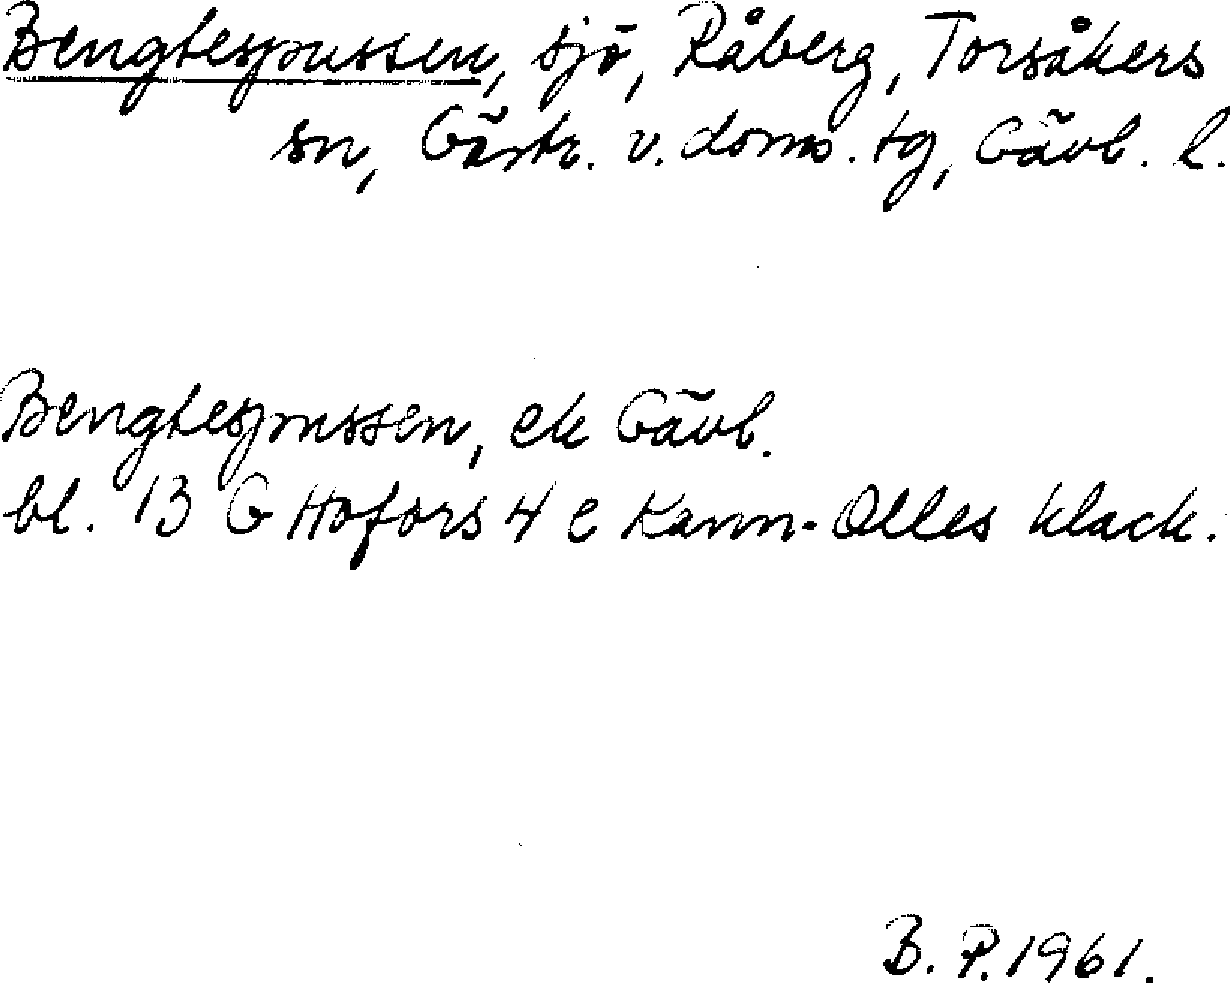 Bengtespussen, sjö, Råberg, Torsåkers
sn, Gästr. v. doms. tg, Gävl. l.
Bengtespussen, ek Gävl.
bl. 13 G Hofors 4 e Karm-Olles klack.
B. P. 1961.